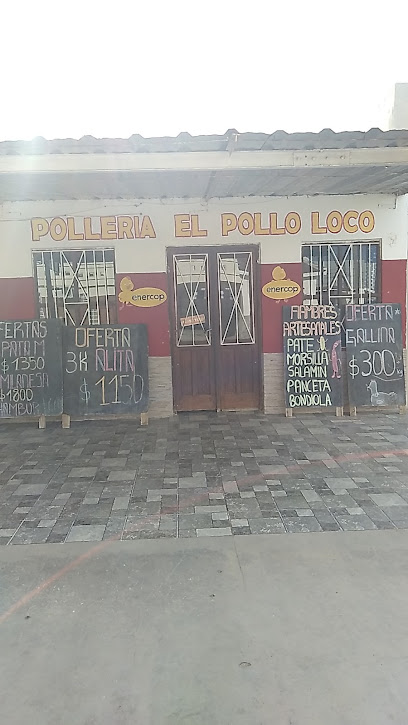 POLLERIA EL POLLO LOCO
enercop
enercop
FERTAS
PATO M
$1350
MILANESA
$1800
OFERTA
3K ALITA
$1150
FIAMBRES
ARTESANALES
PATE
MORSILLA
SALAMIN
PANCETA
BONDIOLA
OFERTA
GALLINA
$300